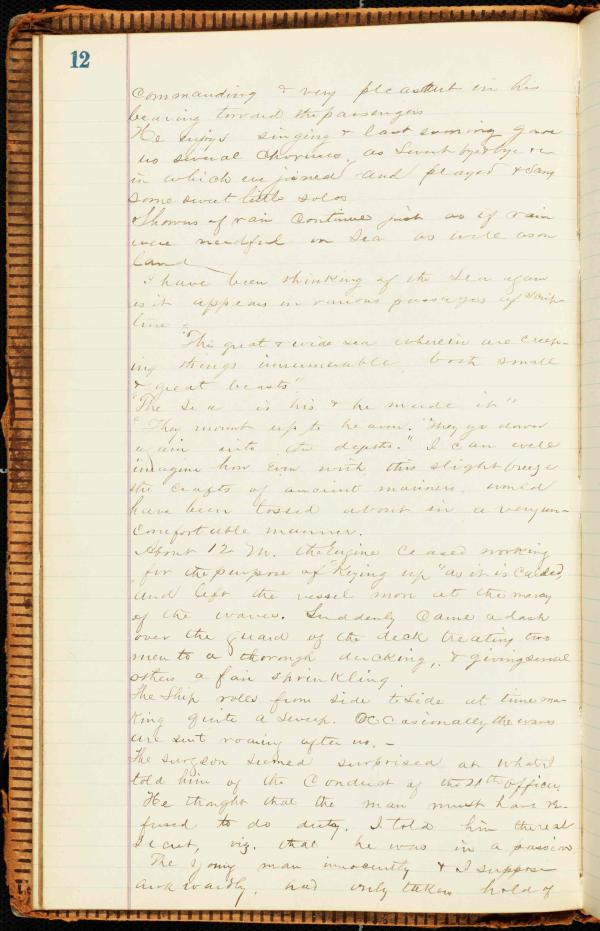 12
Commanding & very pleasant in his
bearing toward the passengers
He enjoys singing & last evening gave
us several choruses, as Sweet bye & bye &c
in which we joined and played & sang
some sweet little solos
Showers of rain continue just as if rain
were needful on Sea as well as on
land
I have been thinking of the Sea again
as it appears in various passages of Scrip-
ture.
"This great & wide sea wherein are creep-
ing things innumerable, both small
& great beasts"
"The Sea is his & he made it"
"They mount up to heaven. They go down
again into the depths." I can well
imagine how even with this slight breeze
the crafts of ancient mariners would
have been tossed about in a very un-
comfortable manner.
About 12 M. the Engine ceased working
for the purpose of "Keying up" as it is called,
and left the vessel more at the mercy
of the waves. Suddenly came a dash
over the guard of the deck treating two
men to a thorough ducking, & giving several
others a fair sprinkling
The Ship rolls from side to side at times ma-
king quite a sweep. Occasionally the waves
are sent roaring after us. –
The surgeon seemed surprised at what I
told him of the Conduct of the 4th Officer.
He thought that the man must have re-
fused to do duty. I told him the real
Secret, viz. that he was in a passion
The young man innocently & I suppose
awkwardly, had only taken hold of